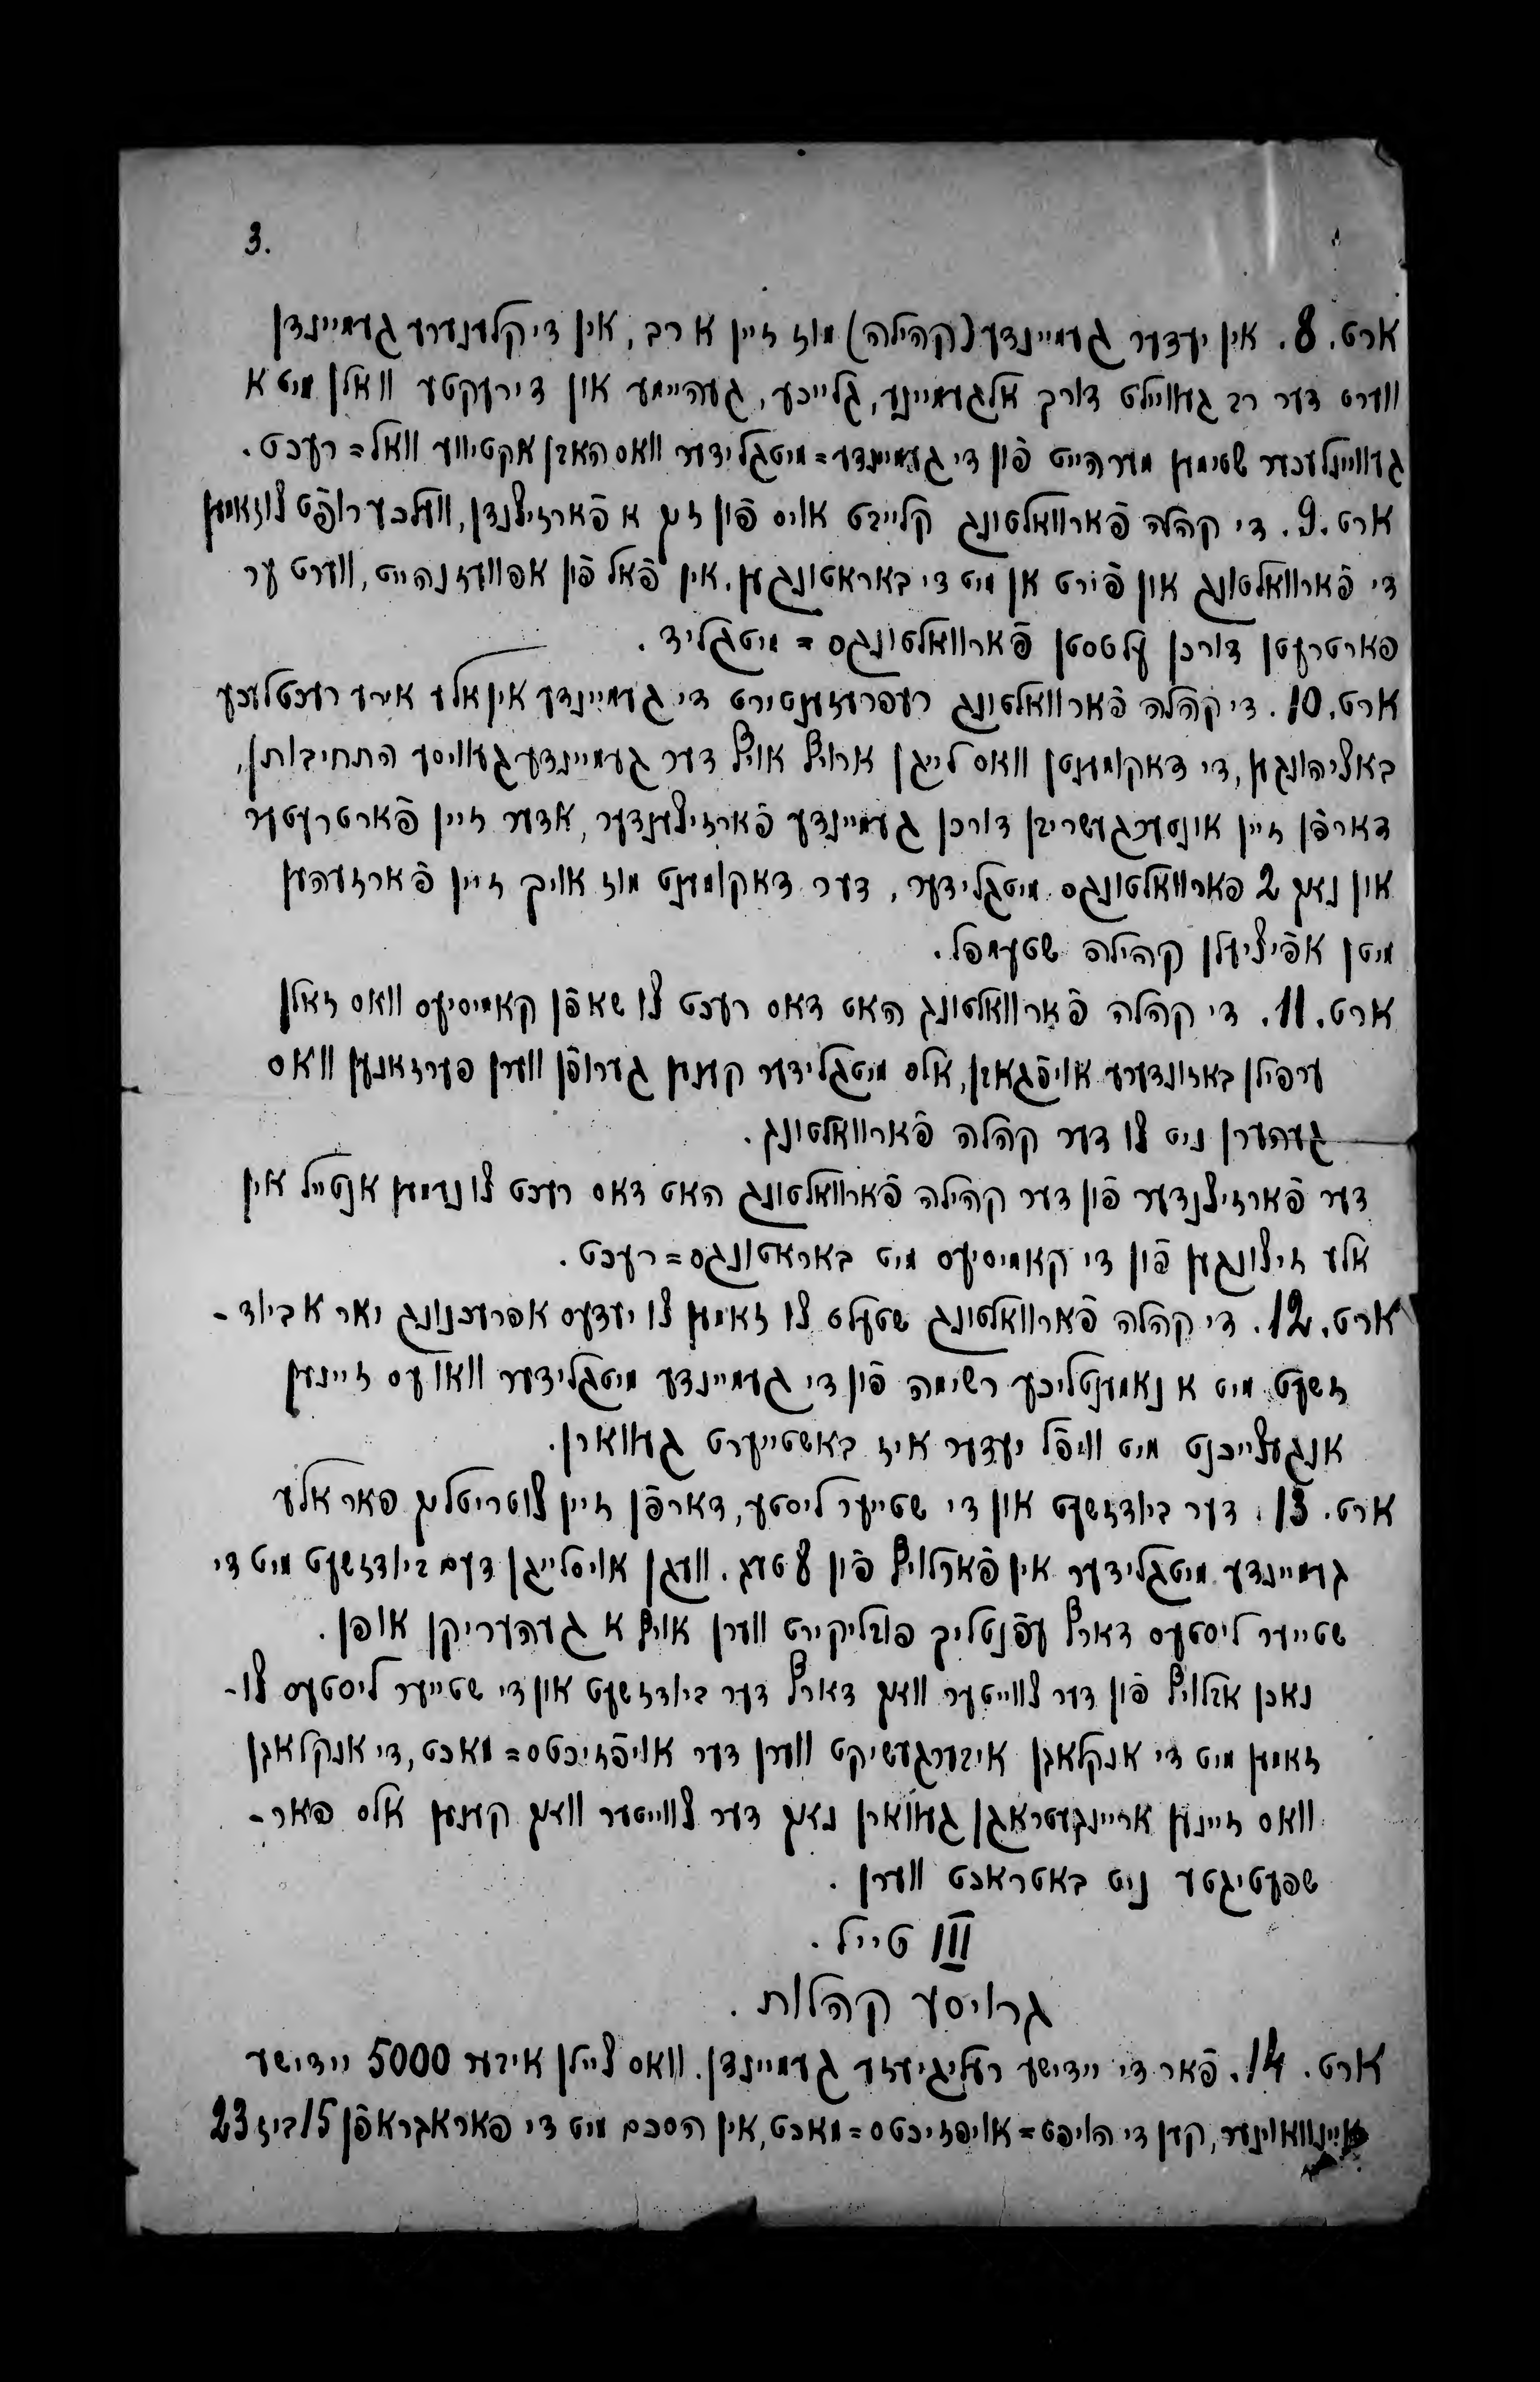 3.
ארט. 8. אין יעדער געמיינדע (קהילה) מוז זיין א רב, אין די קלענערע געמיינדן
ווערט דער רב געוויילט דורך אלגעמיינע, גלייכע, געהיימע און דירעקטע וואלן מיט א
געוויינלעכער שטימען מערהייט פון די געמיינדע=מיטגלידער וואס האבן אקטיווע וואל=רעכט.
ארט. 9. די קהלה פארוואלטונג קלייבט אויס פון זיך א פארזיצנדן, וועלכער רופט צוזאמען
די פארוואלטונג און פירט אן מיט די באראטונגען. אין פאל פון אפוועזנהייט, ווערט ער
פארטרעטן דורכן עלטסטן פארוואלטונגס = מיטגליד.
ארט. 10. די קהלה פארוואלטונג רעפרעזענטירט די געמיינדע אין אלע אירע רעכטלעכע
באציהונגען, די דאקומענטן וואס לייגן ארויף אויף דער געמיינדע געוויסע התחיבותן,
דארפן זיין אונטערגעשריבן דורכן געמיינדע פארזיצענדער, אדער זיין פארטרעטער
און נאך 2 פארוואלטונגס מיטגלידער, דער דאקומענט מוז אויך זיין פארזעהען
מיטן אפיציעלן קהילה שטעמפל.
ארט. 11. די קהלה פארוואלטונג האט דאס רעכט צו שאפן קאמיסיעס וואס זאלן
ערפילן באזונדערע אויפגאבן, אלס מיטגלידער קענען גערופן ווערן פערזאנען וואס
געהערן ניט צו דער קהלה פארוואלטונג.
דער פארזיצנדער פון דער קהילה פארוואלטונג האט דאס רעכט צו נעמען אנטייל אין
אלע זיצונגען פון די קאמיסיעס מיט באראטונגס=רעכט.
ארט. 12. די קהלה פארוואלטונג שטעלט צו זאמען צו יעדעס אפרעכנונג יאר א ביוד-
זשעט מיט א נאמענטליכע רשימה פון די געמיינדע מיטגלידער וואו עס זיינען
אנגעצייכנט מיט וויפל יעדער איז באשטייערט געווארן.
ארט. 13. דער ביודזשעט און די שטייער ליסטע, דארפן זיין צוטריטלעך פאר אלע
געמיינדע מיטגלידער אין פארלויף פון 8 טעג. וועגן אויסלייגן דעם ביודזשעט מיט די
שטייער ליסטעס דארף עפנטליך פובליקירט ווערן אויף א געהעריקן אופן.
נאכן אבלויף פון דער צווייטער וואך דארף דער ביודזשעט און די שטייער ליסטעס צו-
זאמען מיט די אנקלאגן איבערגעשיקט ווערן דער אויפזיכטס=מאכט, די אנקלאגן
וואס זיינען אריינגעטראגן געווארן נאך דער צווייטער וואך קענען אלס פאר-
שפעטיגטע ניט באטראכט ווערן.
III טייל.
גרויסע קהלות.
ארט. 14. פאר די יידישע רעליגיעזע געמיינדן. וואס ציילן איבער 5000 יידישע
איינוואוינער, קען די הויפט=אויפזיכטס=מאכט, אין הסכם מיט די פאראגראפן 15 ביז 23